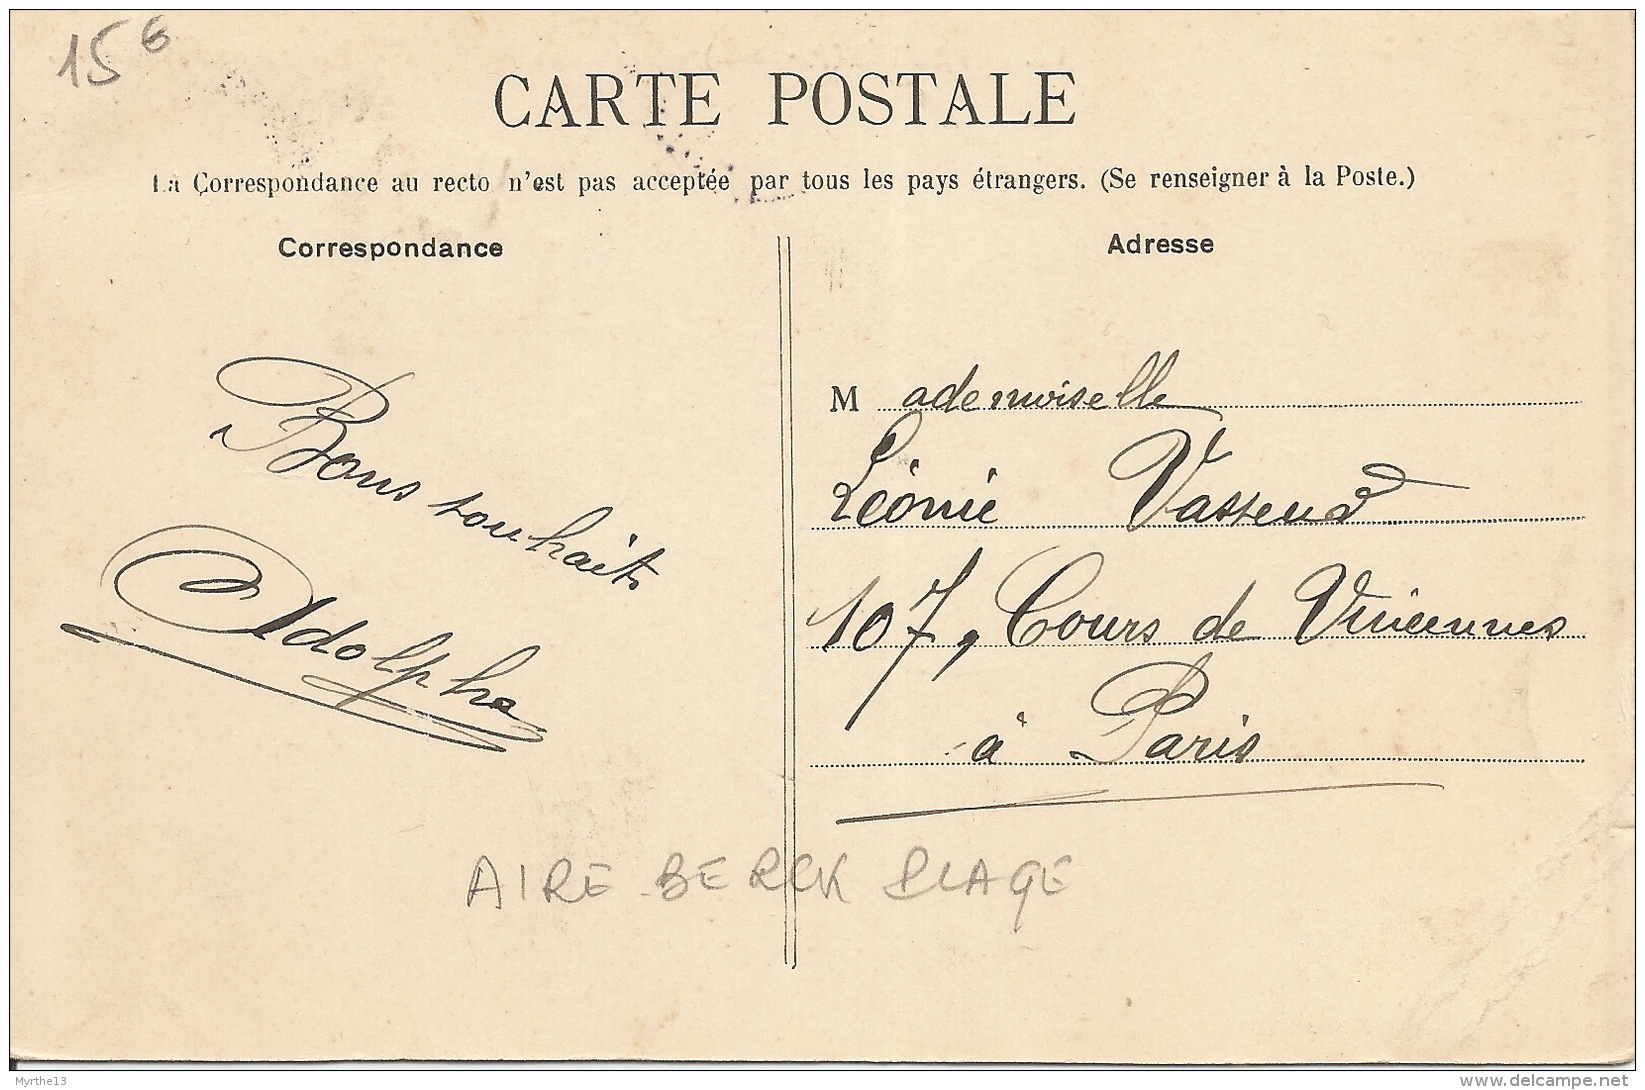 15€
CARTE POSTALE
La Correspondance au recto n'est pas acceptée par tous les pays étrangers. (Se renseigner à la Poste.)
Correspondance
Bons souhaits
Adolphe
Adresse
M ademoiselle
Léonie Vasseur
107, Cours de Vincennes
à Paris
AIRE - BERCK PLAGE
Myrthe13
delcampe.net